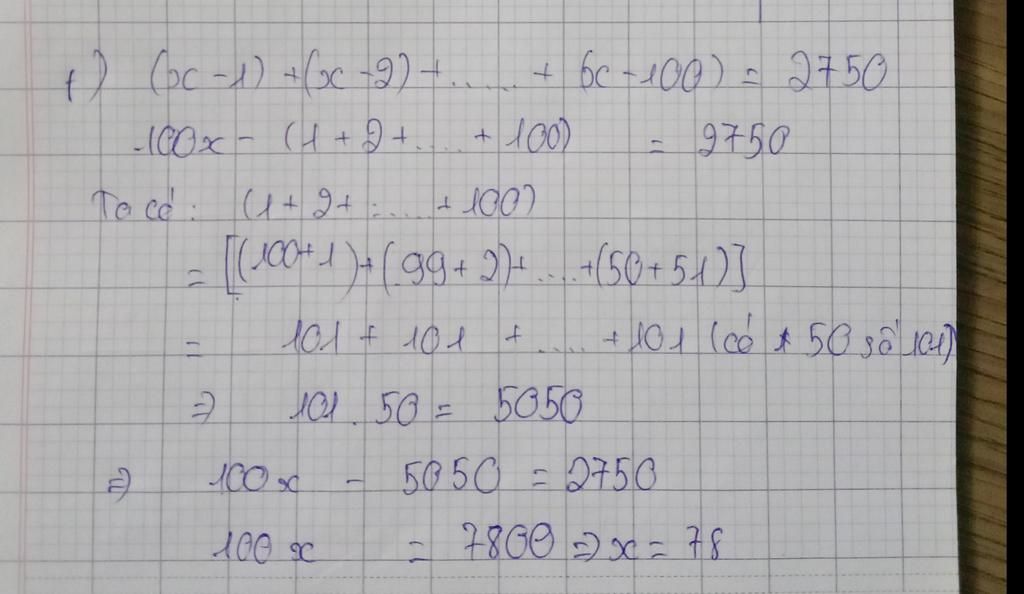 f) (x-1)+(x-2)+.....+ (x-100) = 2750
100x - (1+2+....+100) = 2750
Ta có: (1+2+.....+100)
= [(100+1)+(99+2)+....+(50+51)]
= 101 + 101 + ..... +101 (có 50 số 101)
=> 101.50 = 5050
=> 100x - 5050 = 2750
100x = 7800 => x = 78